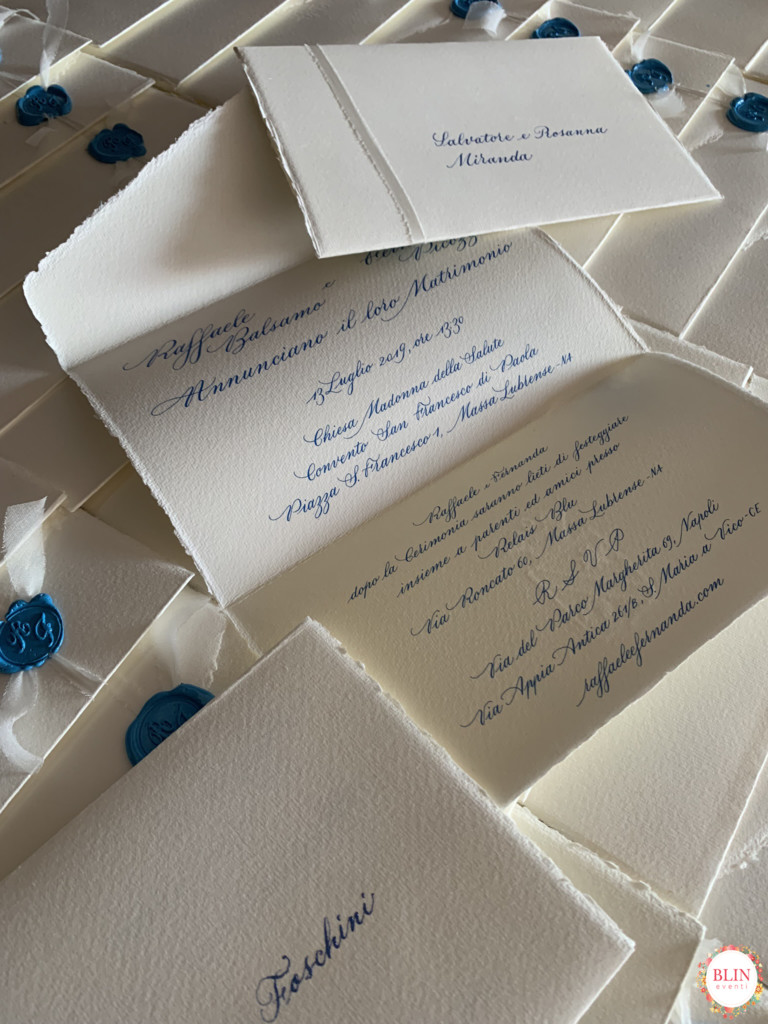 Salvatore e Rosanna
Miranda
Raffaele e
Balsamo
Annunciano il loro Matrimonio
13 Luglio 2019, ore 13.30
Chiesa Madonna della Salute
Convento San Francesco di Paola
Piazza S. Francesco 1, Massa Lubrense-NA
Raffaele e Fernanda
dopo la Cerimonia saranno lieti di festeggiare
insieme a parenti ed amici presso
Relais Blu
Via Roncato 60, Massa Lubrense-NA
R S V P
Via del Parco Margherita 69, Napoli
Via Appia Antica 261/B, S. Maria a Vico-CE
raffaeleefernanda.com
R F
Foschini
BLIN
eventi